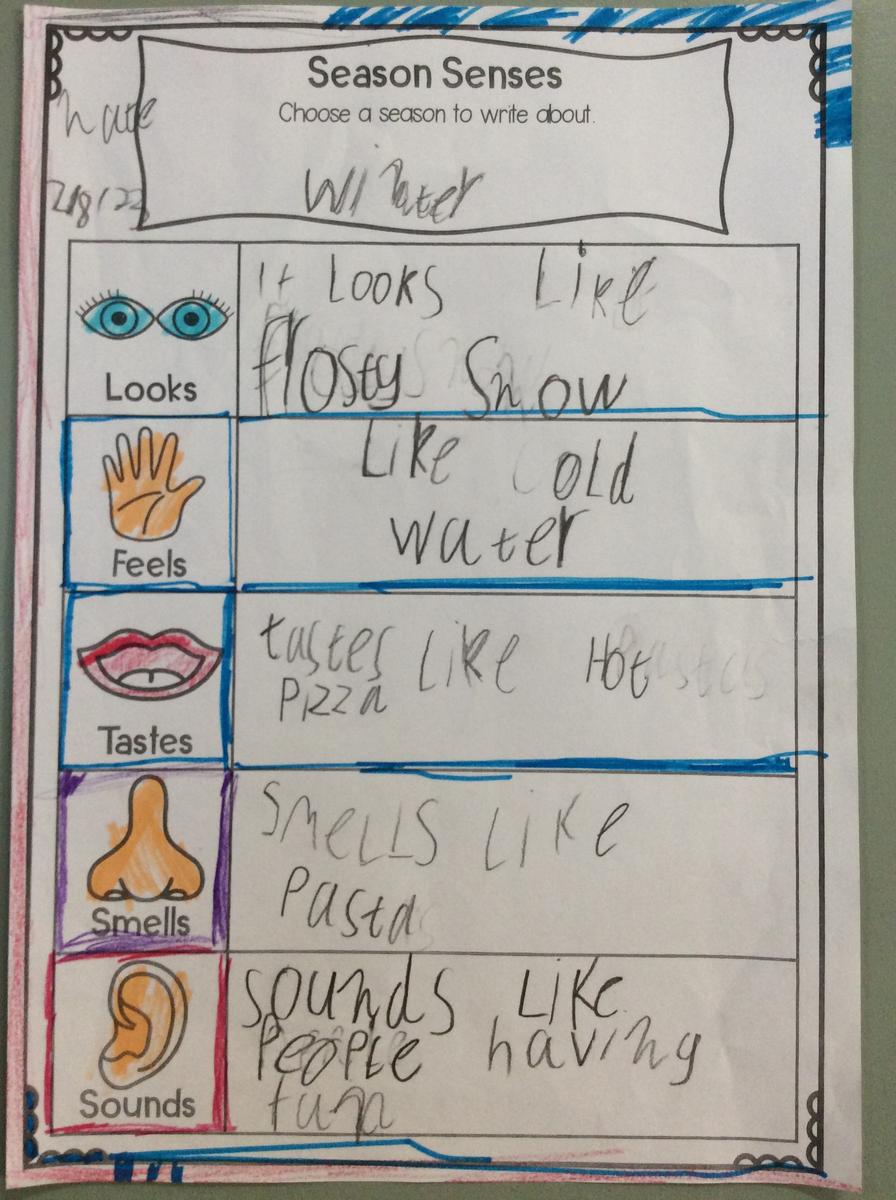 Season Senses
Choose a season to write about.
2/8/22
Winter
It Looks Like
frosty Snow
Looks
Like cold
water
Feels
tastes Like Hot
Pizza
Tastes
Smells Like
Pasta
Smells
sounds Like
People having
Sounds